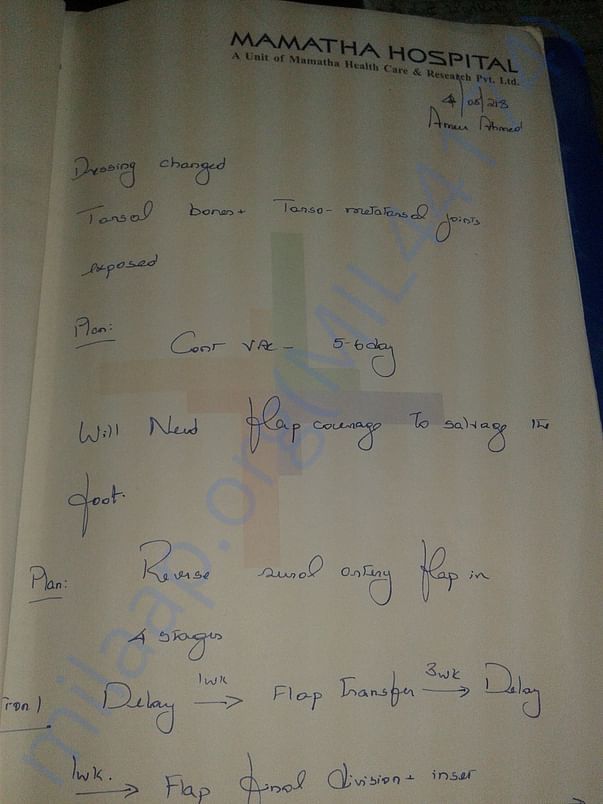 MAMATHA HOSPITAL
A Unit of Mamatha Health Care & Research Pvt. Ltd.
4/08/218
Ameer Ahmed
Dressing changed
Tarsal bones + Tarso-metatarsal joints
exposed
Plan:
Cont VAC - 5-6 day
Will Need flap coverage To salvage the
foot.
Plan: Reverse sural artery flap in
4 stages
Delay 1wk → Flap Transfer 3wk → Delay
1wk. → Flap final division + inset
milaap.org(MIL441